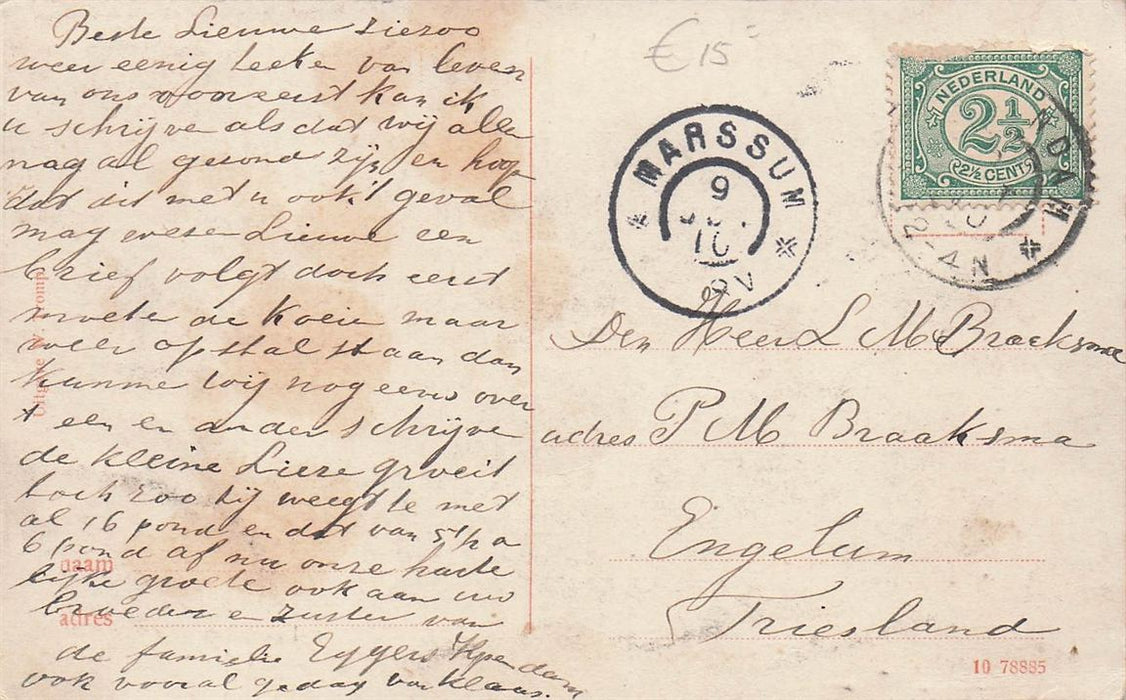 Beste Lieuwe ziezoo
weer eenig teeken van leven
van ons vooreerst kan ik
u schrijve als dat wij alle
nag al gezond zijn en hoop
dat dit met u ook 't geval
mag weze Lieuwe een
brief volgt doch eerst
moete de koeie maar
weer op stal staan dan
kunne wij nog eens over
't een en ander schrijve
de kleine Lieze groeit
toch zoo zij weegt te met
al 16 pond en dat van 5½ a
6 pond af nu onze harte
lijke groete ook aan uw
broeder en zuster van
de familie Eggers Kpendam
ook vooral gedag van Klaas.
Uitgave
naam
adres
€ 15
MARSSUM
9
10
8V
NEDERLAND
2½
2½ CENT
DAM
4N
Den Heer L M Braaksma
adres P M Braaksma
Engelum
Friesland
10 78885